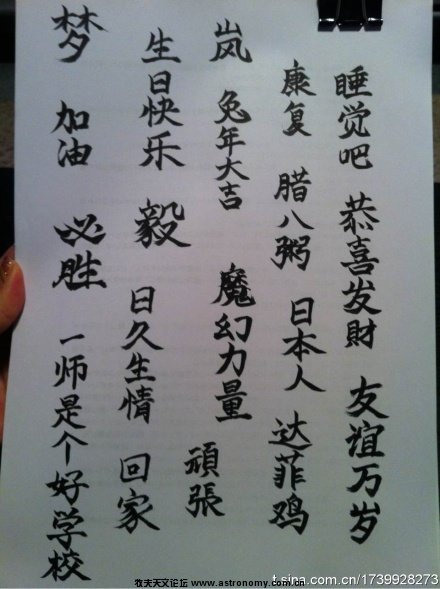 睡觉吧 恭喜发財 友谊万岁
康复 腊八粥 日本人 达菲鸡
岚 兔年大吉 魔幻力量 頑張
生日快乐 毅 日久生情 回家
梦 加油 必胜 一师是个好学校
牧夫天文论坛 www.astronomy.com.cn
t.sina.com.cn/1739928273